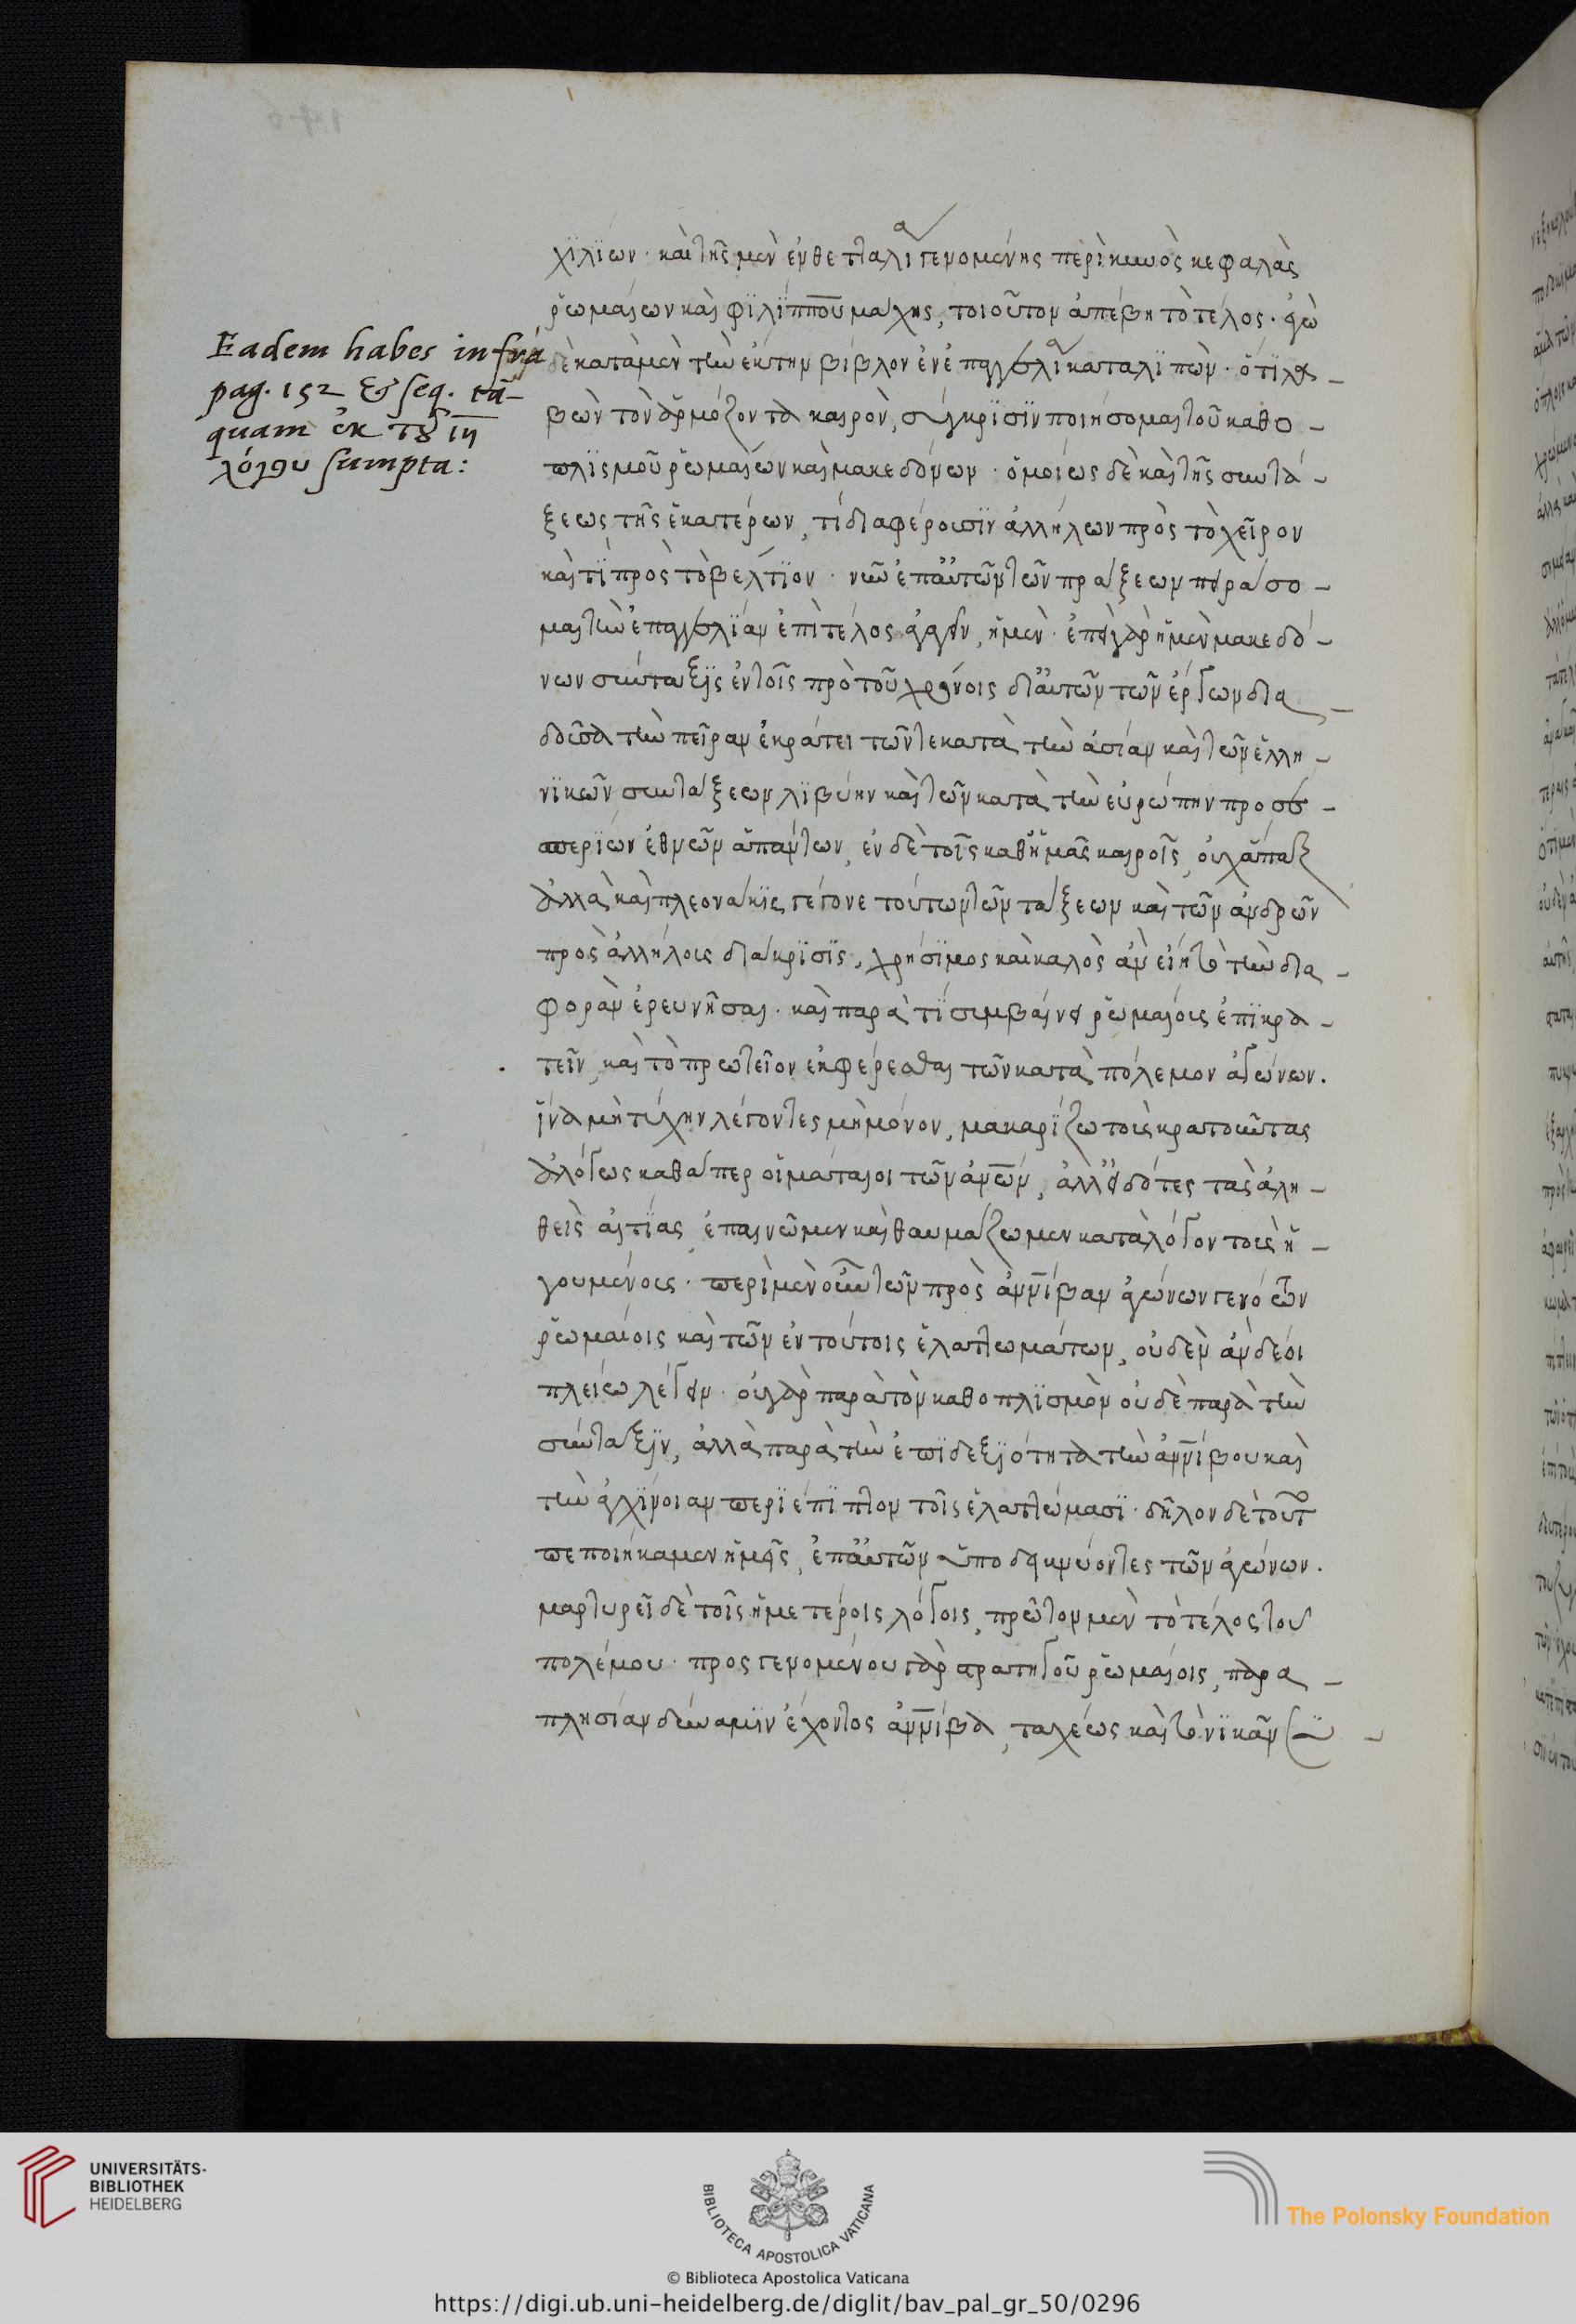 Eadem habes infrà
pag. 152 & seq. tā-
quam ἐκ τȣ ιη
λόγου sumpta:
χϊλϊων· καὶ τῆς μὲν ἐν θετταλΐᾳ γενομένης περὶ κυνὸς κεφαλὰς
ῥωμαίων καὶ φϊλΐππου μάχης, τοιοῦτον ἀπέβη τὸ τέλος· ἐγὼ
δὲ κατὰ μὲν τὴν ἕκτην βίβλον ἐν ἐπαγγελΐᾳ καταλϊπὼν· ὅτϊ λα-
βὼν τὸν ἁρμόζοντα καιρὸν, σύγκρϊσϊν ποιήσομαι τοῦ καθο-
πλϊσμοῦ ῥωμαίων καὶ μακεδόνων· ὁμοίως δὲ καὶ τῆς συντά-
ξεως τῆς ἑκατέρων, τί διαφέρουσϊν ἀλλήλων πρὸς τὸ χεῖρον
καὶ τϊ πρὸς τὸ βέλτϊον· νῦν ἐπ' αὐτῶν τῶν πράξεων πειράσο-
μαι τὴν ἐπαγγελΐαν ἐπὶ τέλος ἀγαγεῖν, ἡμὲν· ἐπεὶ γὰρ ἡ μὲν μακεδό-
νων σύνταξϊς ἐν τοῖς πρὸ τοῦ χρόνοις δι' αὐτῶν τῶν ἔργων δια
δοῦσα τὴν πεῖραν ἐκράτει τῶν τε κατὰ τὴν ἀσίαν καὶ τῶν ἑλλη-
νϊκῶν συντάξεων λϊβύην καὶ τῶν κατὰ τὴν εὐρώπην προσε-
σπερϊων ἐθνῶν ἁπάντων, ἐν δὲ τοῖς καθ' ἡμᾶς καιροῖς, οὐχ ἅπαξ
ἀλλὰ καὶ πλεονάκϊς γέγονε τούτων τῶν τάξεων καὶ τῶν ἀνδρῶν
πρὸς ἀλλήλους διάκρϊσϊς, χρήσϊμος καὶ καλὸς ἂν εἴη τὸ τὴν δια-
φορὰν ἐρευνῆσαι· καὶ παρὰ τϊ συμβαίνει ῥωμαίους ἐπϊκρα-
τεῖν, καὶ τὸ πρωτεῖον ἐκφέρεσθαι τῶν κατὰ πόλεμον ἀγώνων.
ἵνα μὴ τύχην λέγοντες μὴ μόνον, μακαρΐζω τοὺς κρατοῦντας
ἀλόγως καθάπερ οἱ μάταιοι τῶν ἀνῶν, ἀλλ' εἰδότες τὰς ἀλη-
θεῖς αἰτϊας, ἐπαινῶμεν καὶ θαυμάζωμεν κατὰ λόγον τοὺς ἡ-
γουμένους· περὶ μὲν οὖν τῶν πρὸς ἀννΐβαν ἀγώνων γενο ων
ῥωμαίοις καὶ τῶν ἐν τούτοις ἐλαττωμάτων, οὐδὲν ἂν δέοι
πλείω λέγειν· οὐ γὰρ παρὰ τὸν καθοπλϊσμὸν οὐδὲ παρὰ τὴν
σύνταξϊν, ἀλλὰ παρὰ τὴν ἐπϊδεξϊότητα τὴν ἀννΐβου καὶ
τὴν ἀγχϊνοιαν περϊέπϊπτον τοῖς ἐλαττώμασϊ· δῆλον δὲ τοῦτο
πεποιήκαμεν ἡμεῖς, ἐπ' αὐτῶν ὑποδεικνύοντες τῶν ἀγώνων.
μαρτυρεῖ δὲ τοῖς ἡμετέροις λόγοις, πρῶτον μὲν τὸ τέλος τοῦ
πολέμου· προσγενομένου γὰρ στρατηγοῦ ῥωμαίοις, παρα-
πλησίαν δύναμϊν ἔχοντος ἀννΐβα, ταχέως καὶ τὸ νϊκᾶν
UNIVERSITÄTS-
BIBLIOTHEK
HEIDELBERG
BIBLIOTECA APOSTOLICA VATICANA
The Polonsky Foundation
© Biblioteca Apostolica Vaticana
https://digi.ub.uni-heidelberg.de/diglit/bav_pal_gr_50/0296